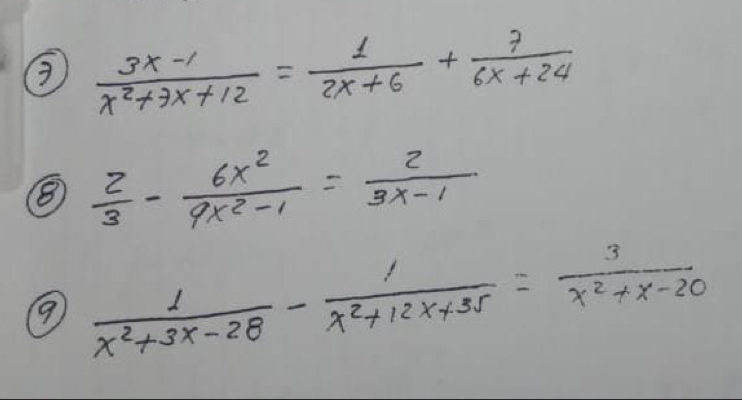 ⑦ (3x-1)/(x²+7x+12) = 1/(2x+6) + 7/(6x+24)
⑧ 2/3 - 6x²/(9x²-1) = 2/(3x-1)
⑨ 1/(x²+3x-28) - 1/(x²+12x+35) = 3/(x²+x-20)